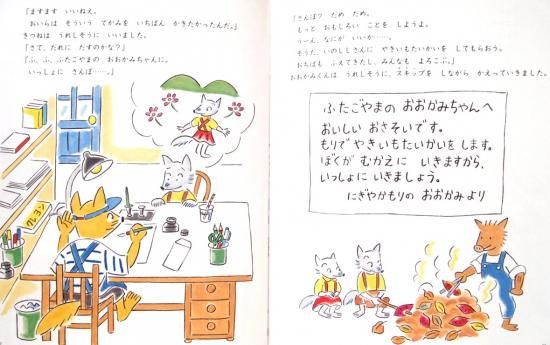 「ますます いいねえ。
おいらは そういう てがみを いちばん かきたかったんだ。」
きつねは うれしそうに いいました。
「さて、だれに だすのかな？」
「ふ、ふ、ふたごやまの おおかみちゃんに。
いっしょに さんぽ……。」
「さんぽ？ だめ だめ。
もっと おもしろい ことを しようよ。
うーん、なにが いいか……。
そうだ、いのししさんに やきいもたいかいを してもらおう。
おたばも ふえてきたし、みんなも よろこぶ。」
おおかみくんは うれしそうに、スキップを しながら かえっていきました。
ふたごやまの おおかみちゃんへ
おいしい おさそいです。
もりで やきいもたいかいを します。
ぼくが むかえに いきますから、
いっしょに いきましょう。
にぎやかもりの おおかみ より
クレヨン